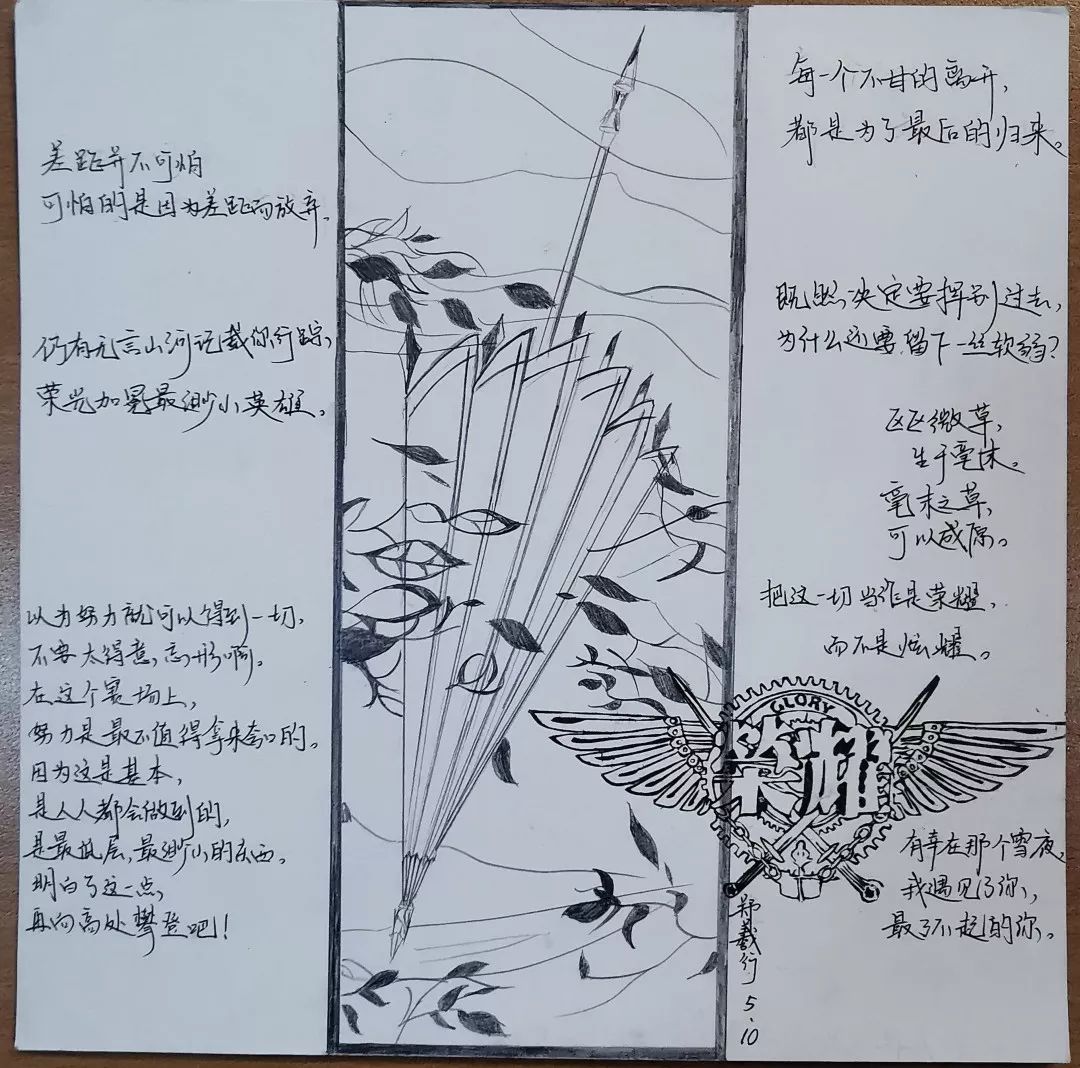 差距并不可怕
可怕的是因为差距而放弃。
仍有无言山河记载你行踪,
荣光加冕最渺小英雄。
以为努力就可以得到一切,
不要太得意忘形啊。
在这个赛场上,
努力是最不值得拿来夸口的。
因为这是基本,
是人人都会做到的,
是最底层,最渺小的东西。
明白了这一点,
再向高处攀登吧!
每一个不甘的离开,
都是为了最后的归来。
既然决定要挥别过去,
为什么还要留下一丝软弱?
区区微草,
生于毫末。
毫末之草,
可以成原。
把这一切当作是荣耀,
而不是炫耀。
GLORY
荣耀
有幸在那个雪夜,
我遇见了你,
最了不起的你。
郑羲行 5.10